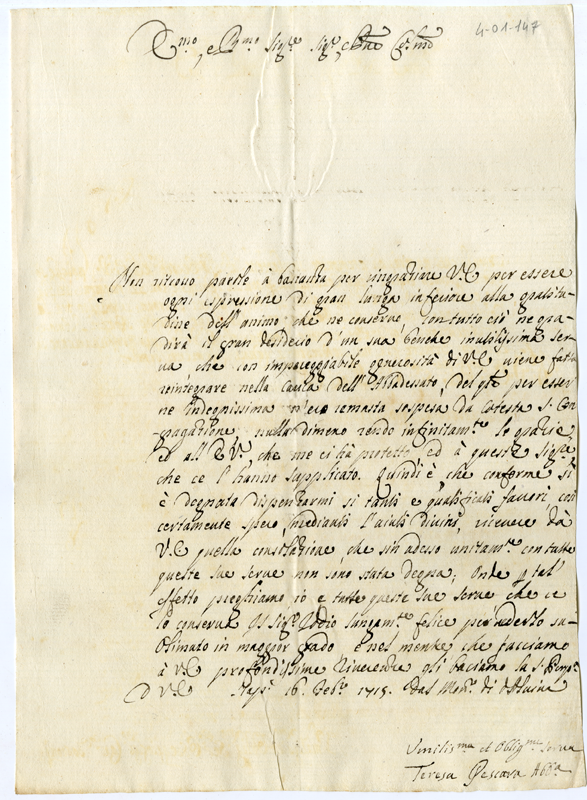 4-01-147
Em.mo, e R.mo Sig.re Sig.re, e P.rone Col.mo
Non ritrovo parole à bastanza per ringratiare V.E. per essere
ogni espressione di gran lunga inferiore alla gratitu-
dine dell'animo che ne conserve, con tutto ciò ne gra-
dirà il gran desiderio d'un sua benche inutilissima ser-
va, che con impareggiabile generosità di V.E. viene fatta
reintegrare nella Carica dell'Abbadessato, del q.le per esser
ne indegnissima n'ero remasta sospesa da cotesta S. Con
gregatione, nulla dimeno rendo infinitam.te le gratie,
ed all'E.V. che me ci hà protetto ed à questi Sig.ri
che ce l'hanno supplicato. Quindi è, che conforme si
è degnata dispenzarmi si tanti e qualificati favori così
certamente spero, mediante l'aiuti divini, ricevere dà
V.E. quella consolatione, che sin adesso unitam.te con tutte
queste sue serve non sono stata degna; Onde p tal
effetto preghiamo io e tutte queste sue serve che ce
lo conserva il Sig.r Iddio lungam.te felice per vederlo su-
blimato in maggior grado, e nel mentre che facciamo
à V.E. profondissime riverenze gli baciamo la S. Porp.a
D V.E. Nap. 16. Feb.ro 1715. Dal Mon.ro di
Umiliss.ma et Oblig.ma serva
Teresa Pescara Abb.a